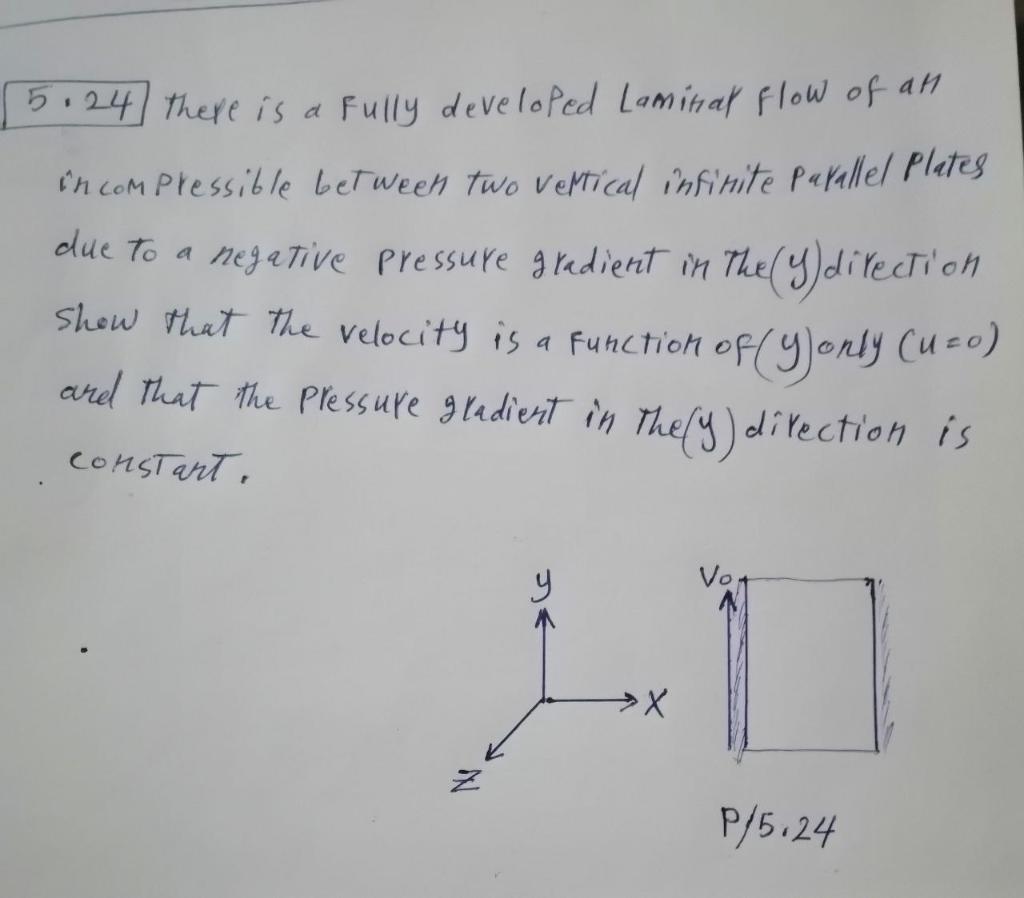 5.24 There is a Fully developed Laminar flow of an
incompressible between two vertical infinite Parallel Plates
due to a negative pressure gradient in The (y) direction
Show that the velocity is a Function of (y) only (u=0)
and that the pressure gradient in The (y) direction is
constant.
y
Vo
X
Z
P/5.24